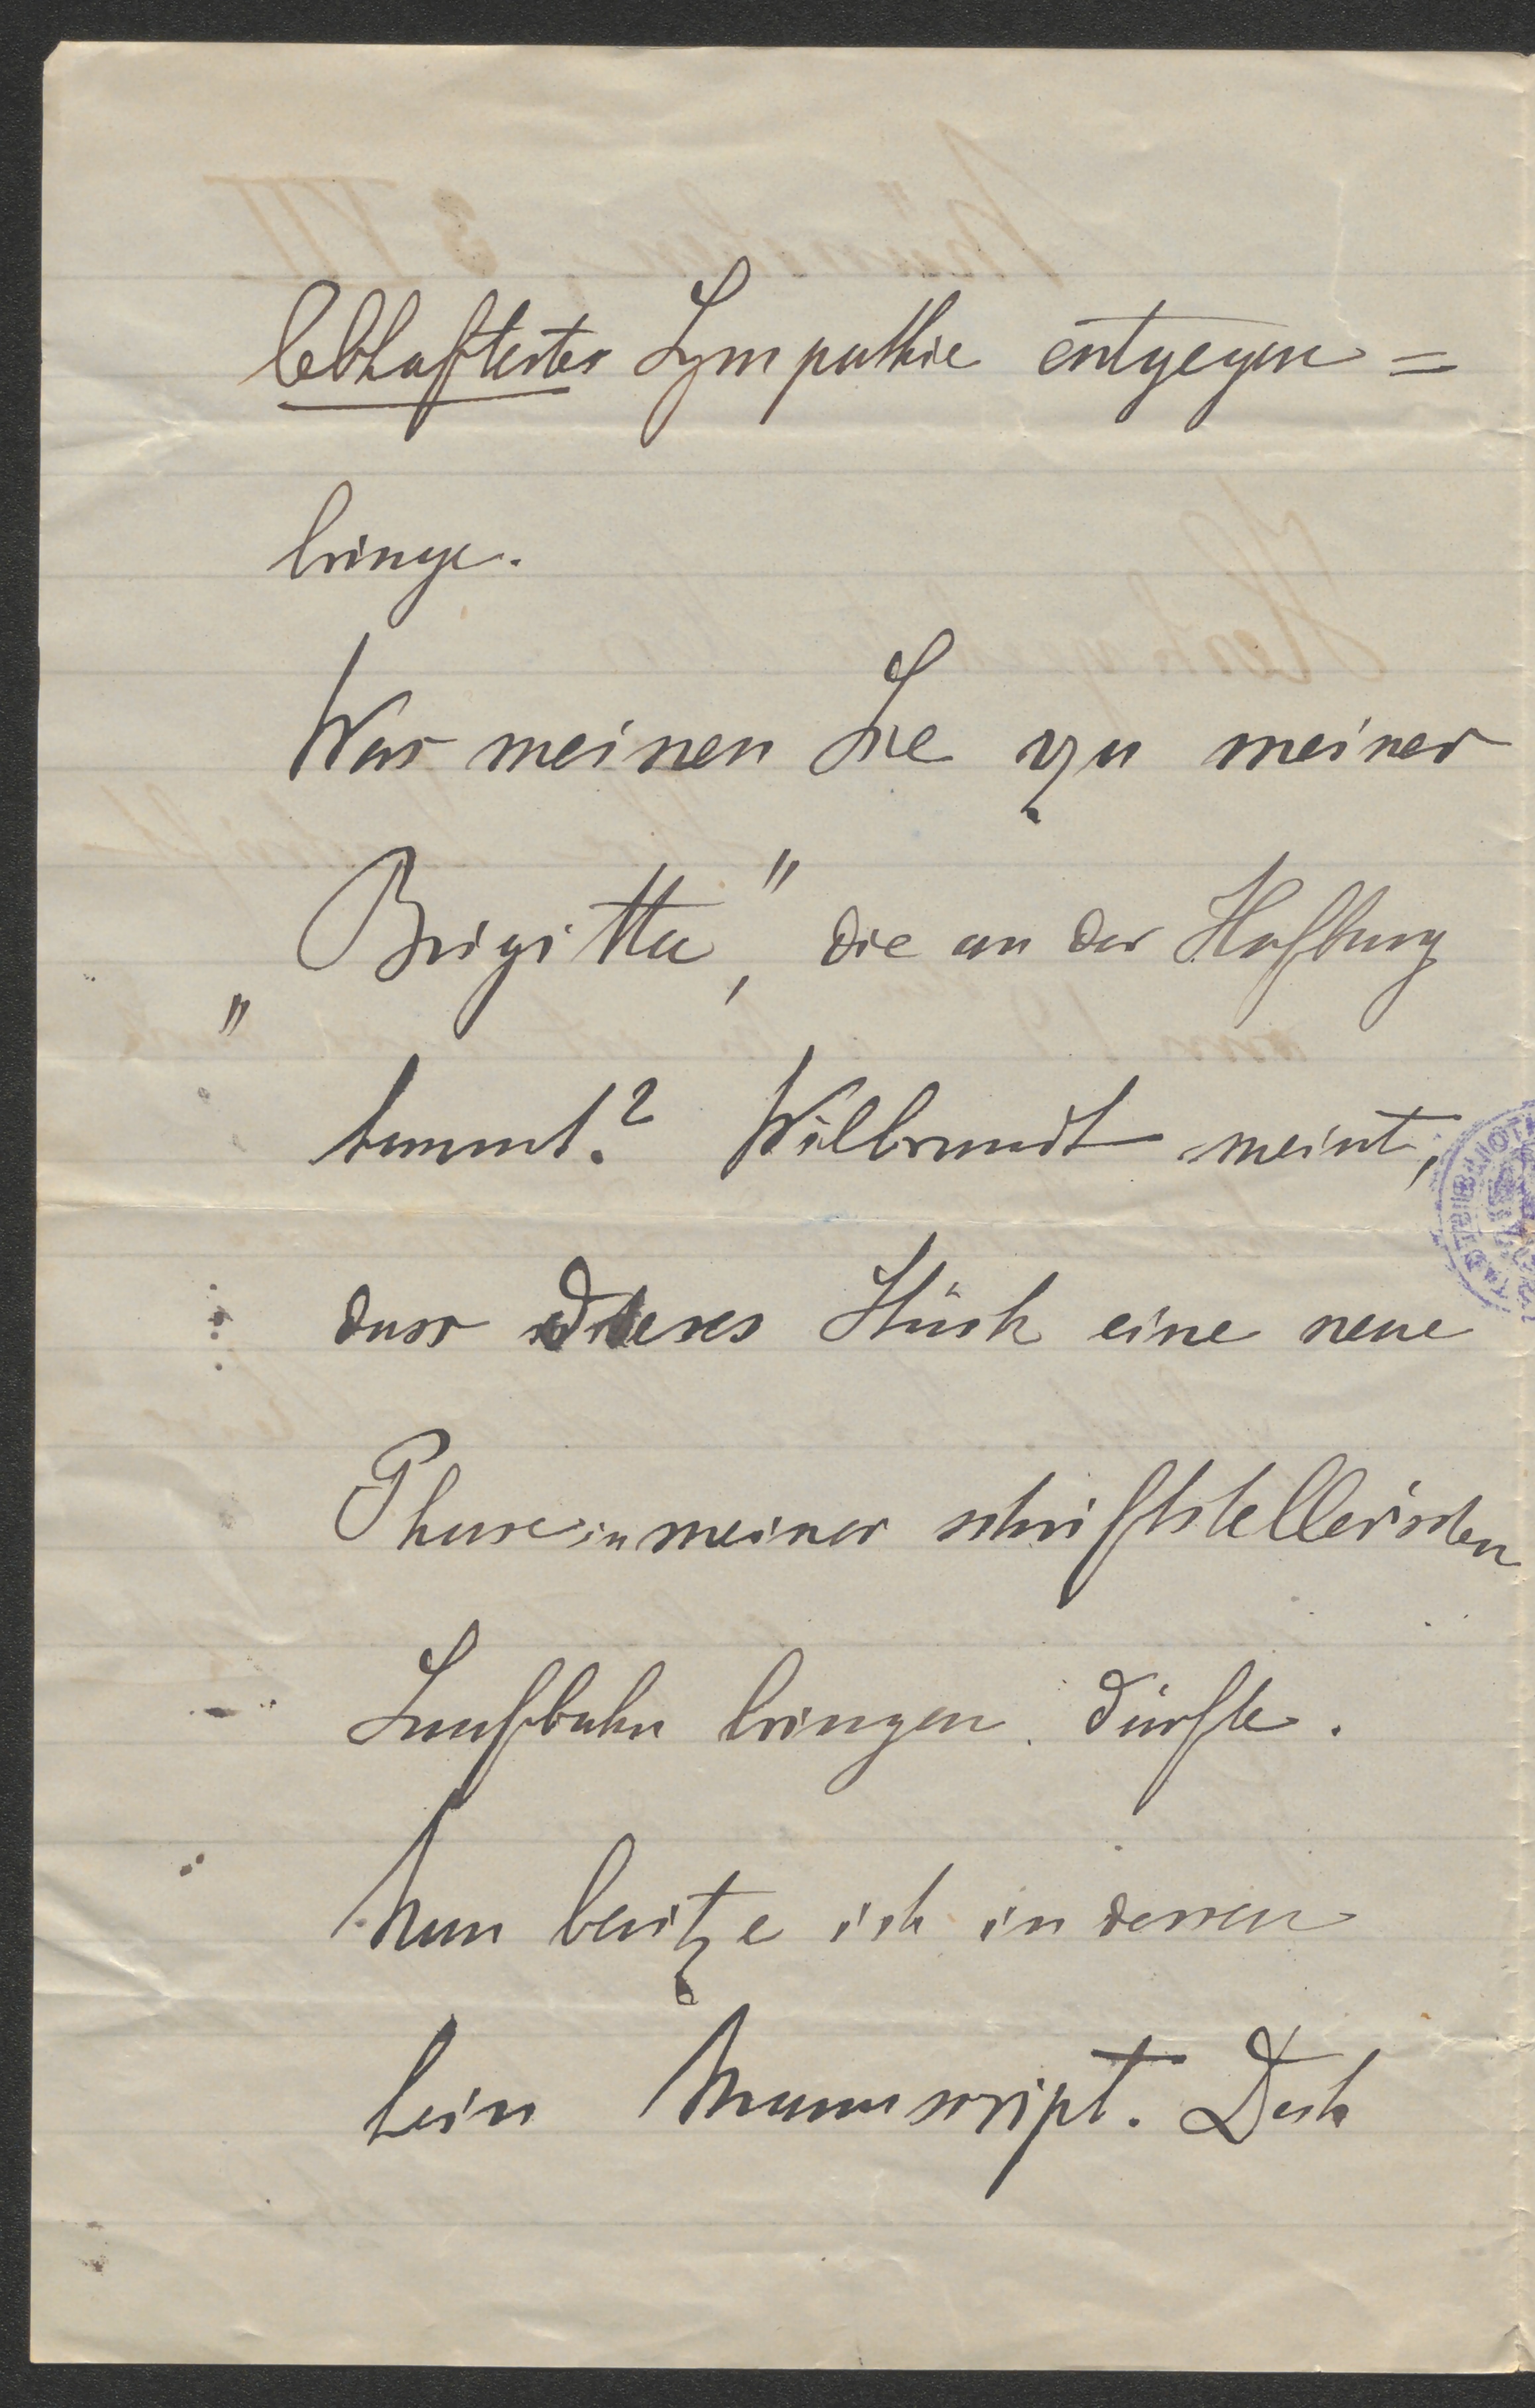 lebhaftester Sympathie entgegen=
bringe.
Was meinen Sie zu meiner
„Brigitta", die an der Hofburg
kommt? Wilbrandt meint,
dass dieses Stück eine neue
Phase in meiner schriftstellerischen
Laufbahn bringen dürfte.
Nun besitze ich indessen
kein Manuscript. Doch